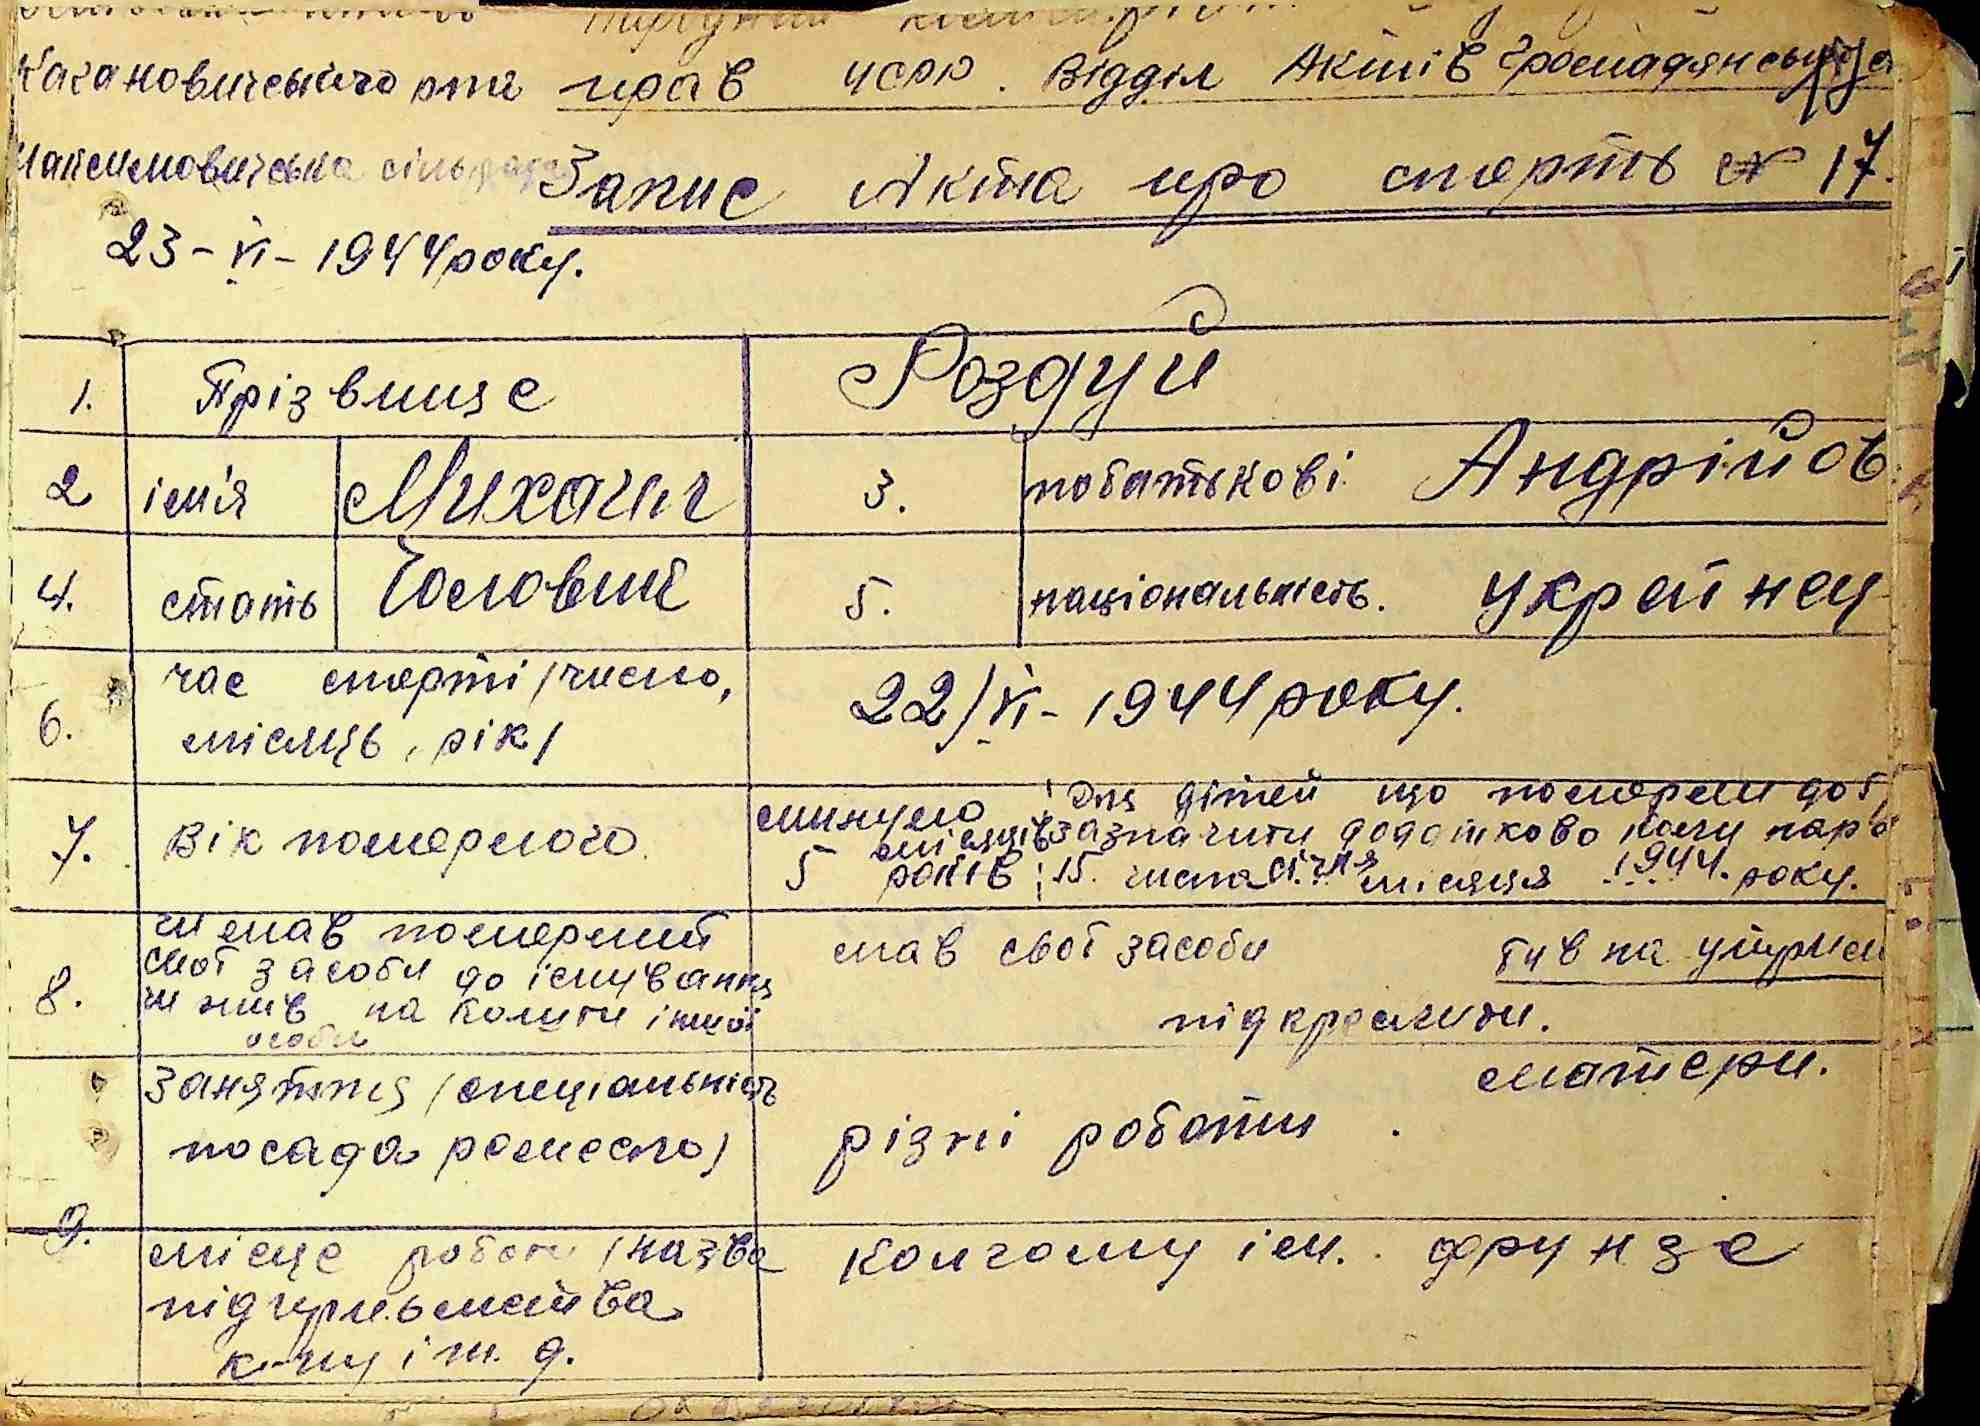 Кагановичського р-ну прав УСРР. Відділ Актів Громадянськ
Максимовичська сільрада Запис Акта про смерть № 17.
23-VI-1944 року.
1. Прізвище Роздуй
2 ім'я Михаил 3. побатькові Андрійов
4. стать Чоловіч 5. національність. Украйнец
час смерті /число,
6. місяць, рік/ 22/VI-1944 року.
7. Вік померлого
минуло місяців 5 років
Для дітей що померли до 5
зазначити додатково коли наро
15. числа січня місяця 1944. року.
8. чи мав померший
свої засоби до існування
чи жив на кошти іншої
особи
мав свої засоби був на утриман
підкреслити.
матери.
Заняття /спеціальність
посада ремесло/ різні роботи.
9.
місце роботи /назва колгоспу ім. Фрунзе
підприємства
к-пу і т. д.